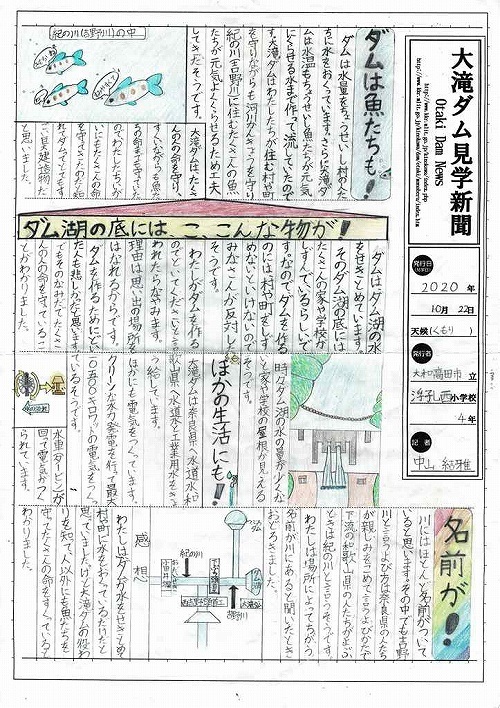 大滝ダム見学新聞
Otaki Dam News
発行日
2020年
10月 22日
天候(くもり)
発行者
大和高田市 立
浮孔西小学校
4年
記者
中山 結雅
名前が!
川にはほとんど名前がついて
いると思います。その中でも吉野
川と言うよび方は奈良県の人たち
が親しみをこめて言うよびかたで
下流の和歌山県の人たちがよぶ
ときは紀の川と言うそうです。
わたしは場所によってちがう
名前が川にあると聞いたとき
おどろきました。
ダムは魚たちも!
ダムは水量をちょうせいし村の人た
ちに水をおくっています。さらに大滝ダ
ムは水温もちょうせいし魚たちが元気
にくらせる水まで作って流しているので
す。大滝ダムはわたしたちが住む村や町
を守りながらも河川かんきょうを守り
紀の川(吉野川)に住むたくさんの魚
たちが元気よくくらせるため工夫
してきたそうです。
大滝ダムは、たくさ
んの人の命を守り、
紀の川(吉野川)の中
と思いました。
ダム湖の底には、こ、こんな物が!
ダムはダム湖の水
をせきとめています。
そのダム湖の底には
たくさんの家や学校が
しずんでいるらしいで
す。なのでダムを作る
のには村や町をしず
めないといけないので
みなさんが反対した
そうです。
わたしがダムを作る
のでどいてくださいと言
われたらなやみます。
理由は思い出の場所を
はなれるからです。
ダムを作るためにどい
た人も悲しかったと思います。
でもそのなみだでたくさ
んの人の命を守っているこ
とがわかりました。
時々ダム湖の水の量が少くな
いと家や学校の屋根が見える
そうです。
ほかの生活にも!
大滝ダムは奈良県へ水道水、和
歌山県へ水道水と工業用水をきょ
う給しています。
ほかにも電気をつくっています。
クリーンな水力発電を行って最大
10500キロワットの電気をつくっ
ているそうです。
水車(タービン)が
回って電気がつく
られています。
紀の川
吉野川
ダム湖
感想
わたしはダムが水をせきとめて
村や町に水をおくっているだけだと
思っていましたけど大滝ダムの役わ
りを知って、人以外にも魚たちを
守ってたくさんの命をすくっていると
わかりました。